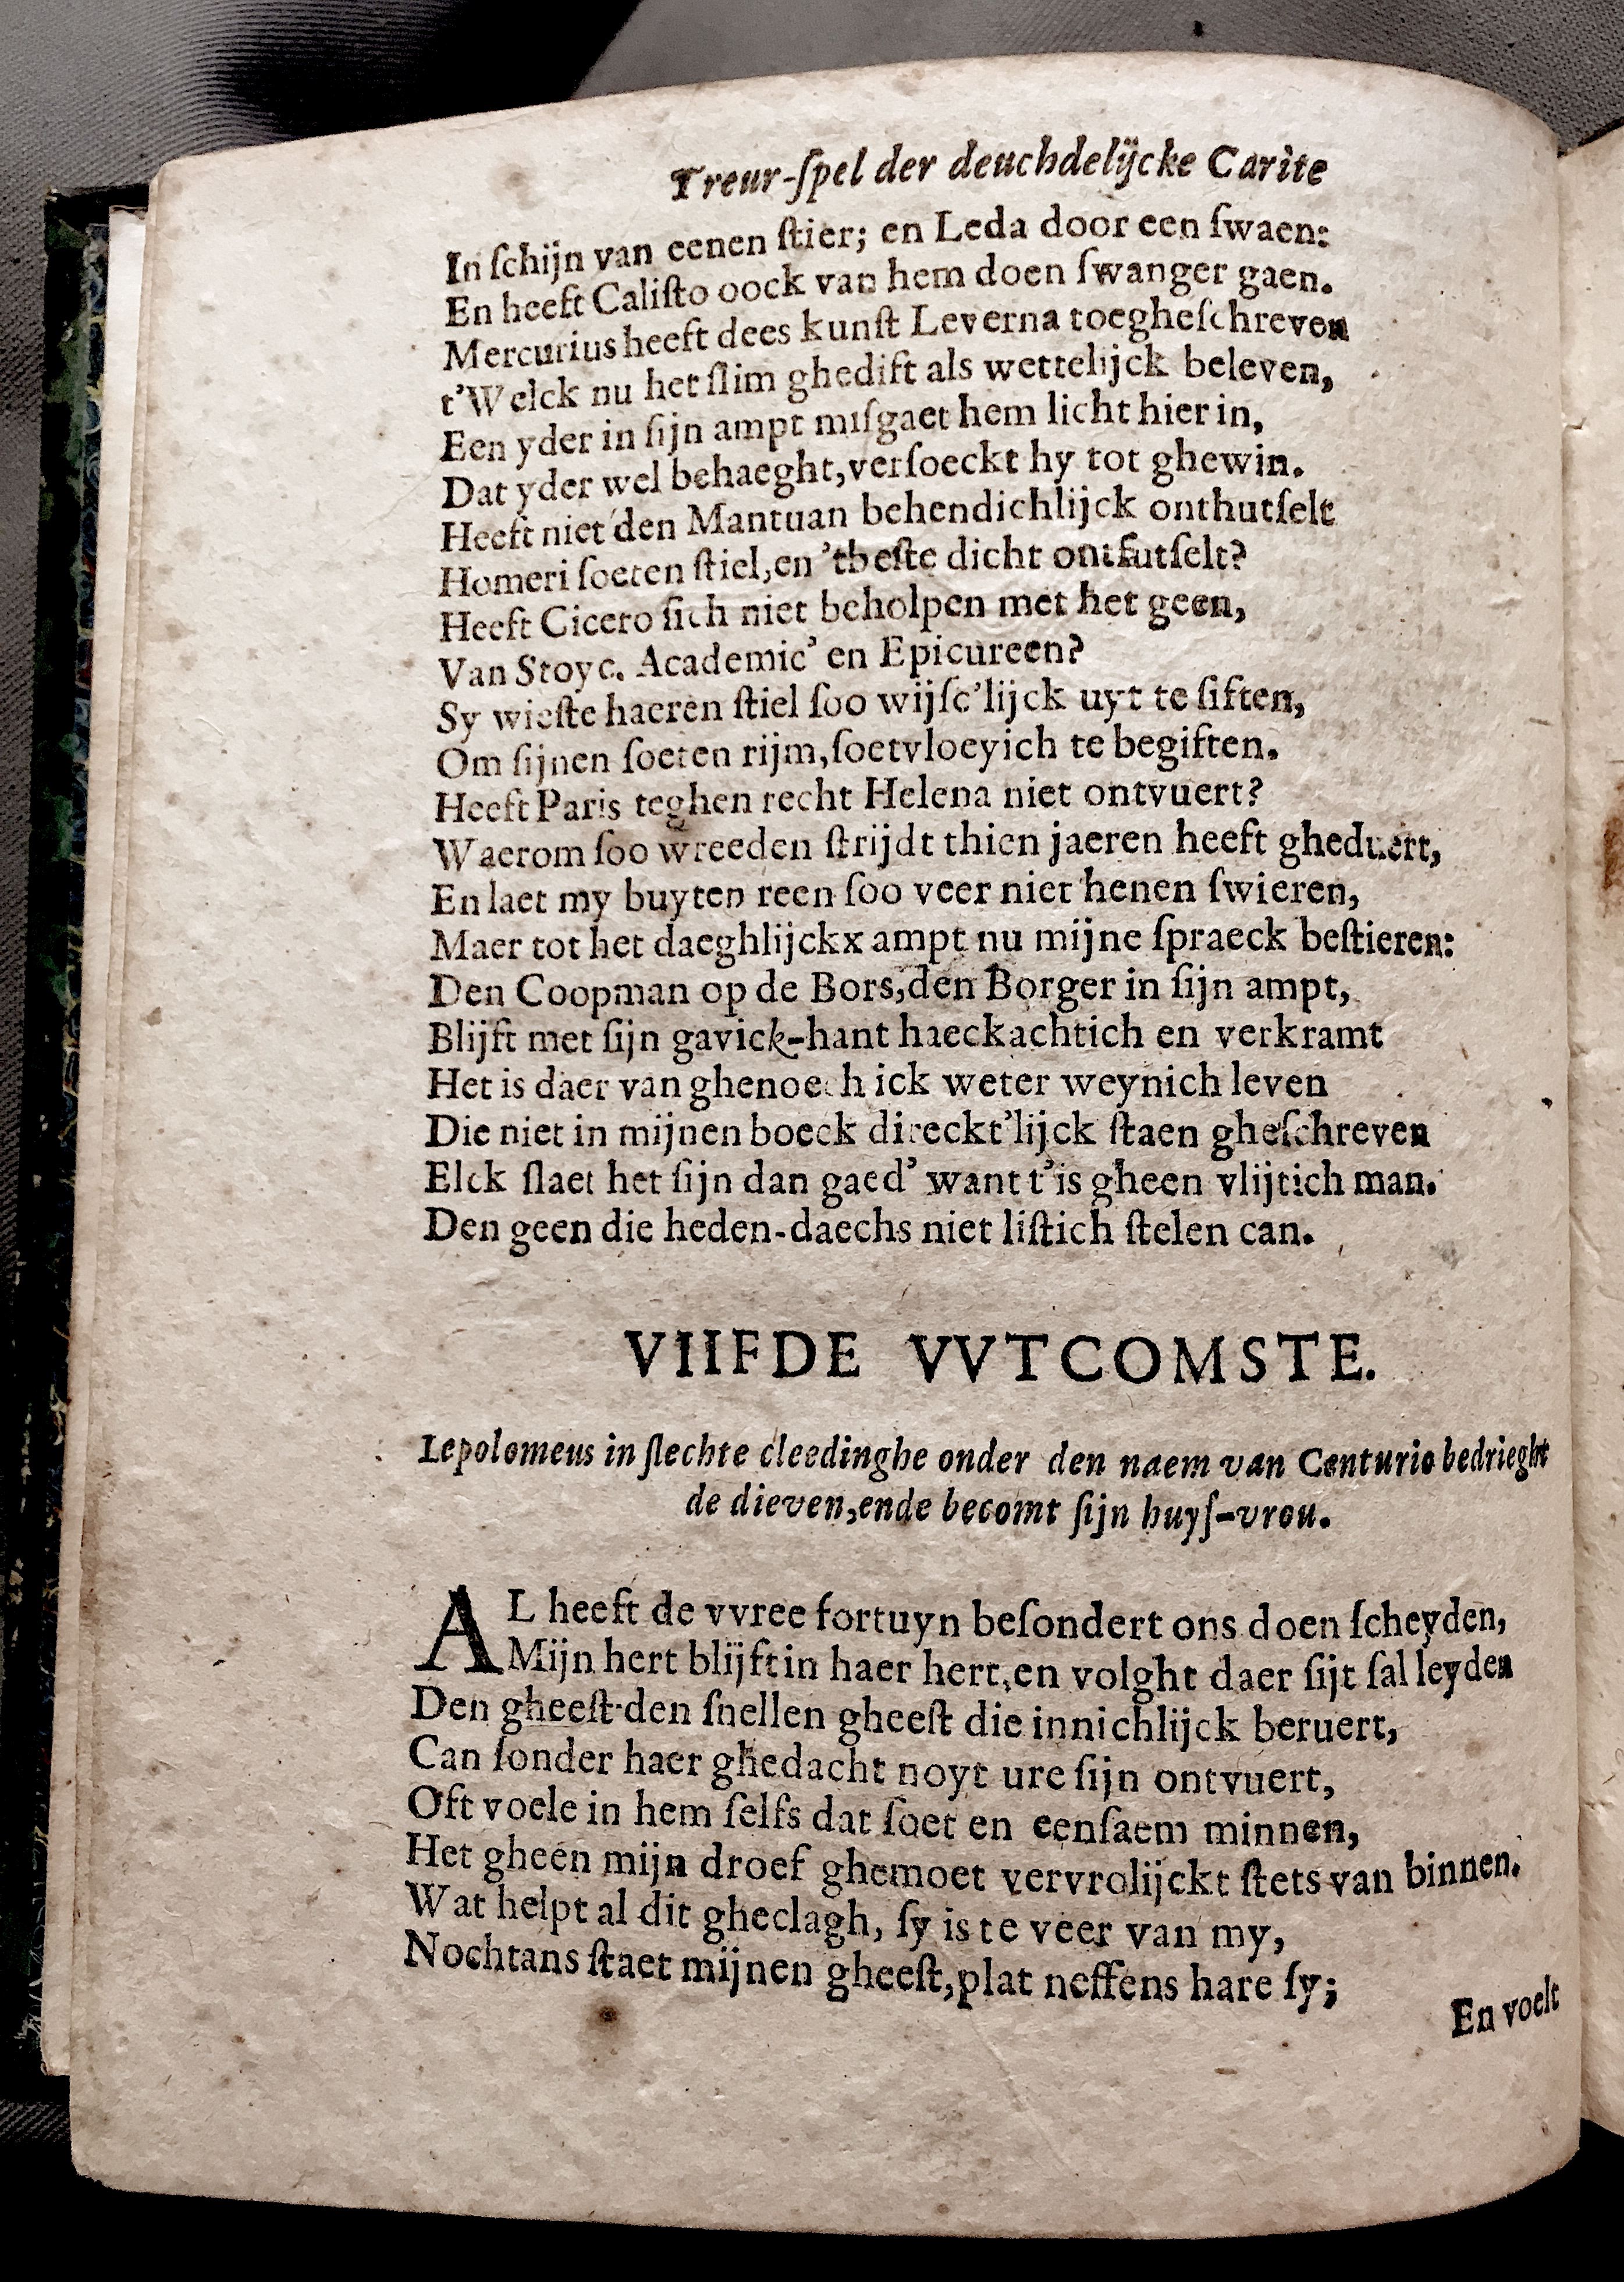 Treur-ſpel der deuchdelijcke Carite
In ſchijn van eenen ſtier; en Leda door een ſwaen:
En heeft Caliſto oock van hem doen ſwanger gaen.
Mercurius heeft dees kunſt Leverna toegheſchreven
t'Welck nu het ſlim ghediſt als wettelijck beleven,
Een yder in ſijn ampt miſgaet hem licht hier in,
Dat yder wel behaeght, verſoeckt hy tot ghewin.
Heeft niet den Mantuan behendichlijck onthutſelt
Homeri ſoeten ſtiel, en 'tbeſte dicht ontfutſelt?
Heeft Cicero ſich niet beholpen met het geen,
Van Stoyc. Academic' en Epicureen?
Sy wieſte haeren ſtiel ſoo wijſe'lijck uyt te ſiften,
Om ſijnen ſoeten rijm, ſoetvloeyich te begiften.
Heeft Paris teghen recht Helena niet ontvuert?
Waerom ſoo wreeden ſtrijdt thien jaeren heeft gheduert,
En laet my buyten reen ſoo veer niet henen ſwieren,
Maer tot het daeghlijckx ampt nu mijne ſpraeck beſtieren:
Den Coopman op de Bors, den Borger in ſijn ampt,
Blijft met ſijn gavick-hant haeckachtich en verkramt
Het is daer van ghenoech ick weter weynich leven
Die niet in mijnen boeck direckt'lijck ſtaen gheſchreven
Elck ſlaet het ſijn dan gaed' want t'is gheen vlijtich man.
Den geen die heden-daechs niet liſtich ſtelen can.
VIIFDE VVTCOMSTE.
Lepolomeus in ſlechte cleedinghe onder den naem van Centurio bedrieght
de dieven, ende becomt ſijn huyſ-vrou.
AL heeft de vvree fortuyn beſondert ons doen ſcheyden,
Mijn hert blijft in haer hert, en volght daer ſijt ſal leyden
Den gheeſt den ſnellen gheeſt die innichlijck beruert,
Can ſonder haer ghedacht noyt ure ſijn ontvuert,
Oft voele in hem ſelfs dat ſoet en eenſaem minnen,
Het gheen mijn droef ghemoet vervrolijckt ſtets van binnen.
Wat helpt al dit gheclagh, ſy is te veer van my,
Nochtans ſtaet mijnen gheeſt, plat neffens hare ſy;
En voelt